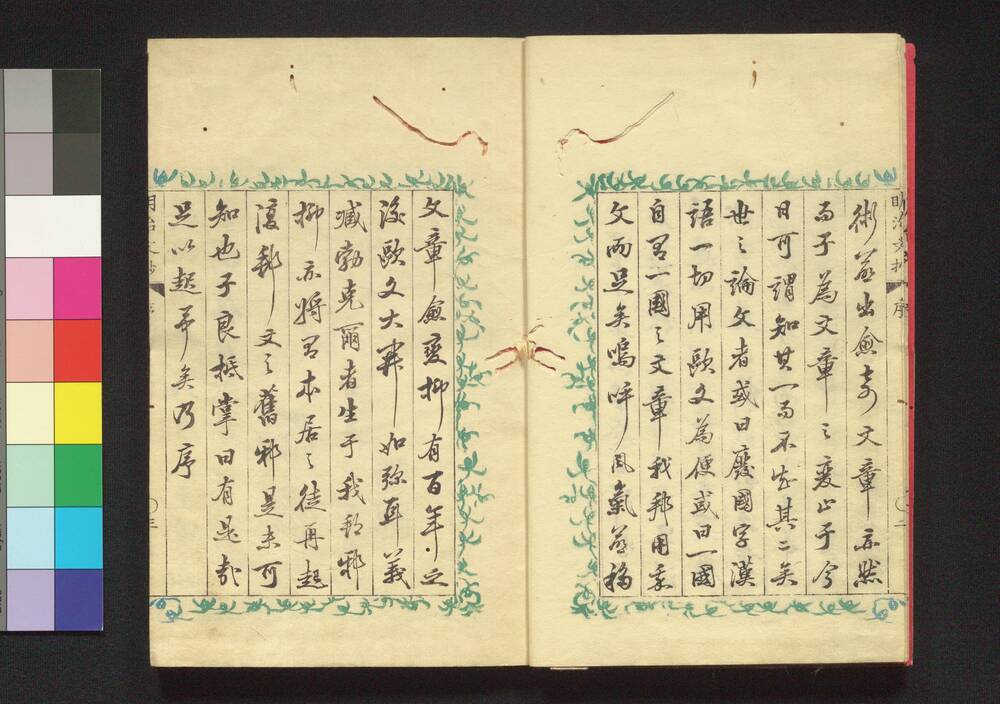 術益出愈奇文章亦然
而子為文章之變止于今
日可謂知其一而不知其二矣
世之論文者或曰廢國字漢
語一切用歐文為便或曰一國
自有一國之文章我邦用我
文而足矣嗚呼風氣益移
文章愈變抑有百年之
後歐文大弊如弥耳義
臧勃克爾者生于我邦邪
抑亦將有本居之徒再起
復我文之舊邪是未可
知也子良抵掌曰有是哉
足以起予矣乃序
明治文抄
序
二